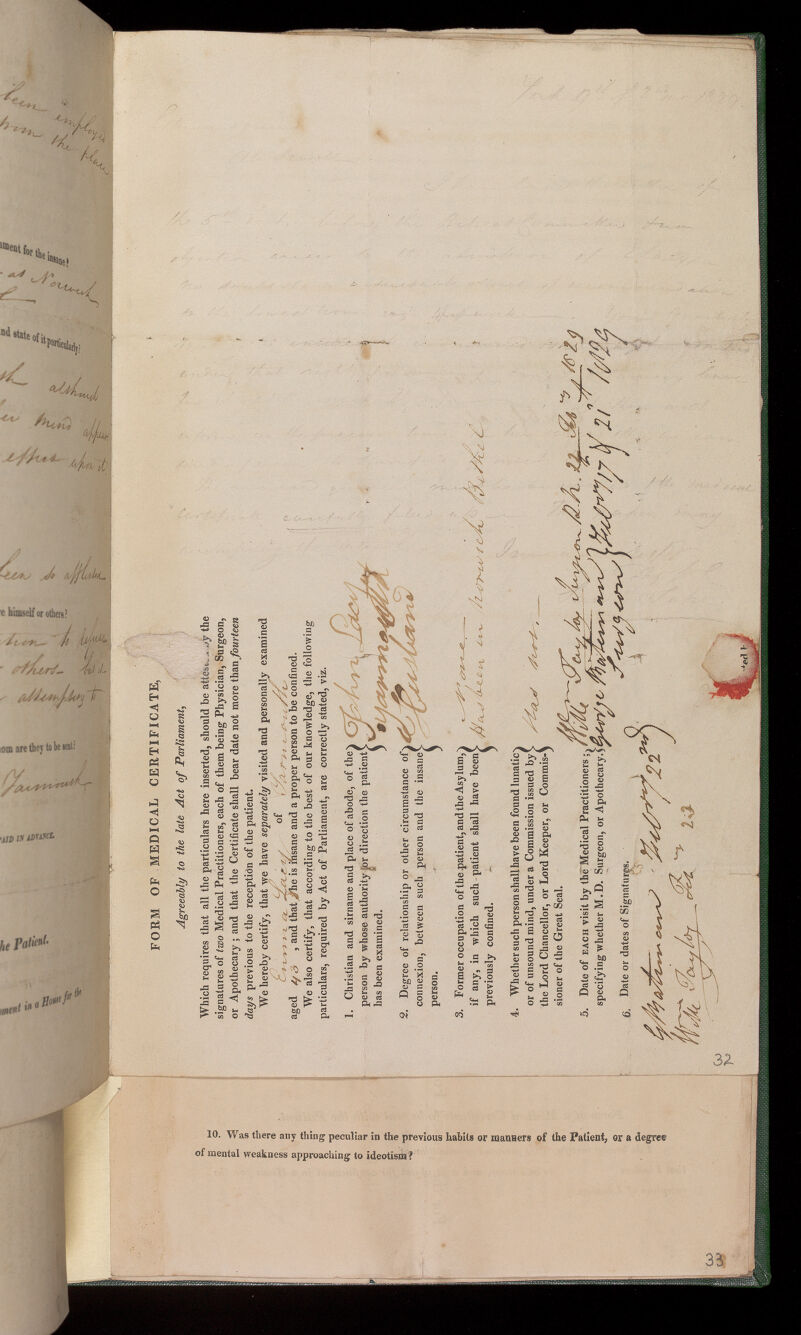 FORM OF MEDICAL CERTIFICATE,
Agreeably to the late Act of Parliament,
Which requires that all the particulars here inserted, should be by the
signatures of two Medical Practitioners, each of them being Physician, Surgeon,
or Apothecary; and that the Certificate shall bear date not more than fourteen
days previous to the reception of the patient.
We hereby certify, that we have separately visited and personally examined
Emma Lacy of Yarmouth
aged 43 , and that she is insane and a proper person to be confined.
We also certify, that according to the best of our knowledge, the following
particulars, required by Act of Parliament, are correctly stated, viz.
1. Christian and sirname and place of abode, of the
person by whose authority or direction the patient
has been examined.
John Lacy
Yarmouth
2. Degree of relationship or other circumstance of
connexion, between such person and the insane
person.
Husband
3. Former occupation of the patient, and the Asylum,
if any, in which such patient shall have been
previously confined.
None
Has been in Norwich Bethel
4. Whether such person shall have been found lunatic
or of unsound mind, under a Commission issued by
the Lord Chancellor, or Lord Keeper, or Commis-
sioner of the Great Seal.
Has not.
5. Date of EACH visit by the Medical Practitioners;
specifying whether M.D. Surgeon, or Apothecary.
Wm Taylor Surgeon 22 Feby 1829
George Bateman Febry 17 & 21st 1829
Surgeon
6. Date or dates of Signatures.
G Bateman Febry 22nd
Taylor Feby 23
32
10. Was there any thing peculiar in the previous habits or manners of the Patient, or a degree
of mental weakness approaching to ideotism?
33
been employed
from the place
ment for the insane?
at Norwich
nd state of it particularly?
mind
effect upon it
been so afflicted
e himself or others?
others
attempting to
om are they to be sent?
Yarmouth
PAID IN ADVANCE.
he Patient.
ment in a House for the